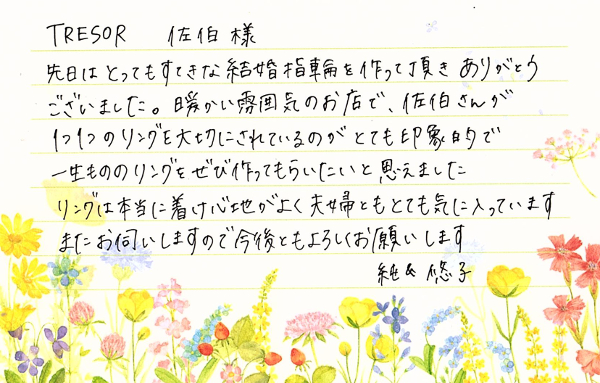 TRESOR 佐伯 様
先日は とってもすてきな 結婚指輪を作って頂き ありがとう
ございました。暖かい雰囲気のお店で、佐伯さんが
1つ1つのリングを大切にされているのが とても印象的で
一生もののリングを ぜひ作ってもらいたいと 思えました
リングは本当に着け心地がよく 夫婦ともとても気に入っています
またお伺いしますので今後ともよろしくお願いします
純& 悠子